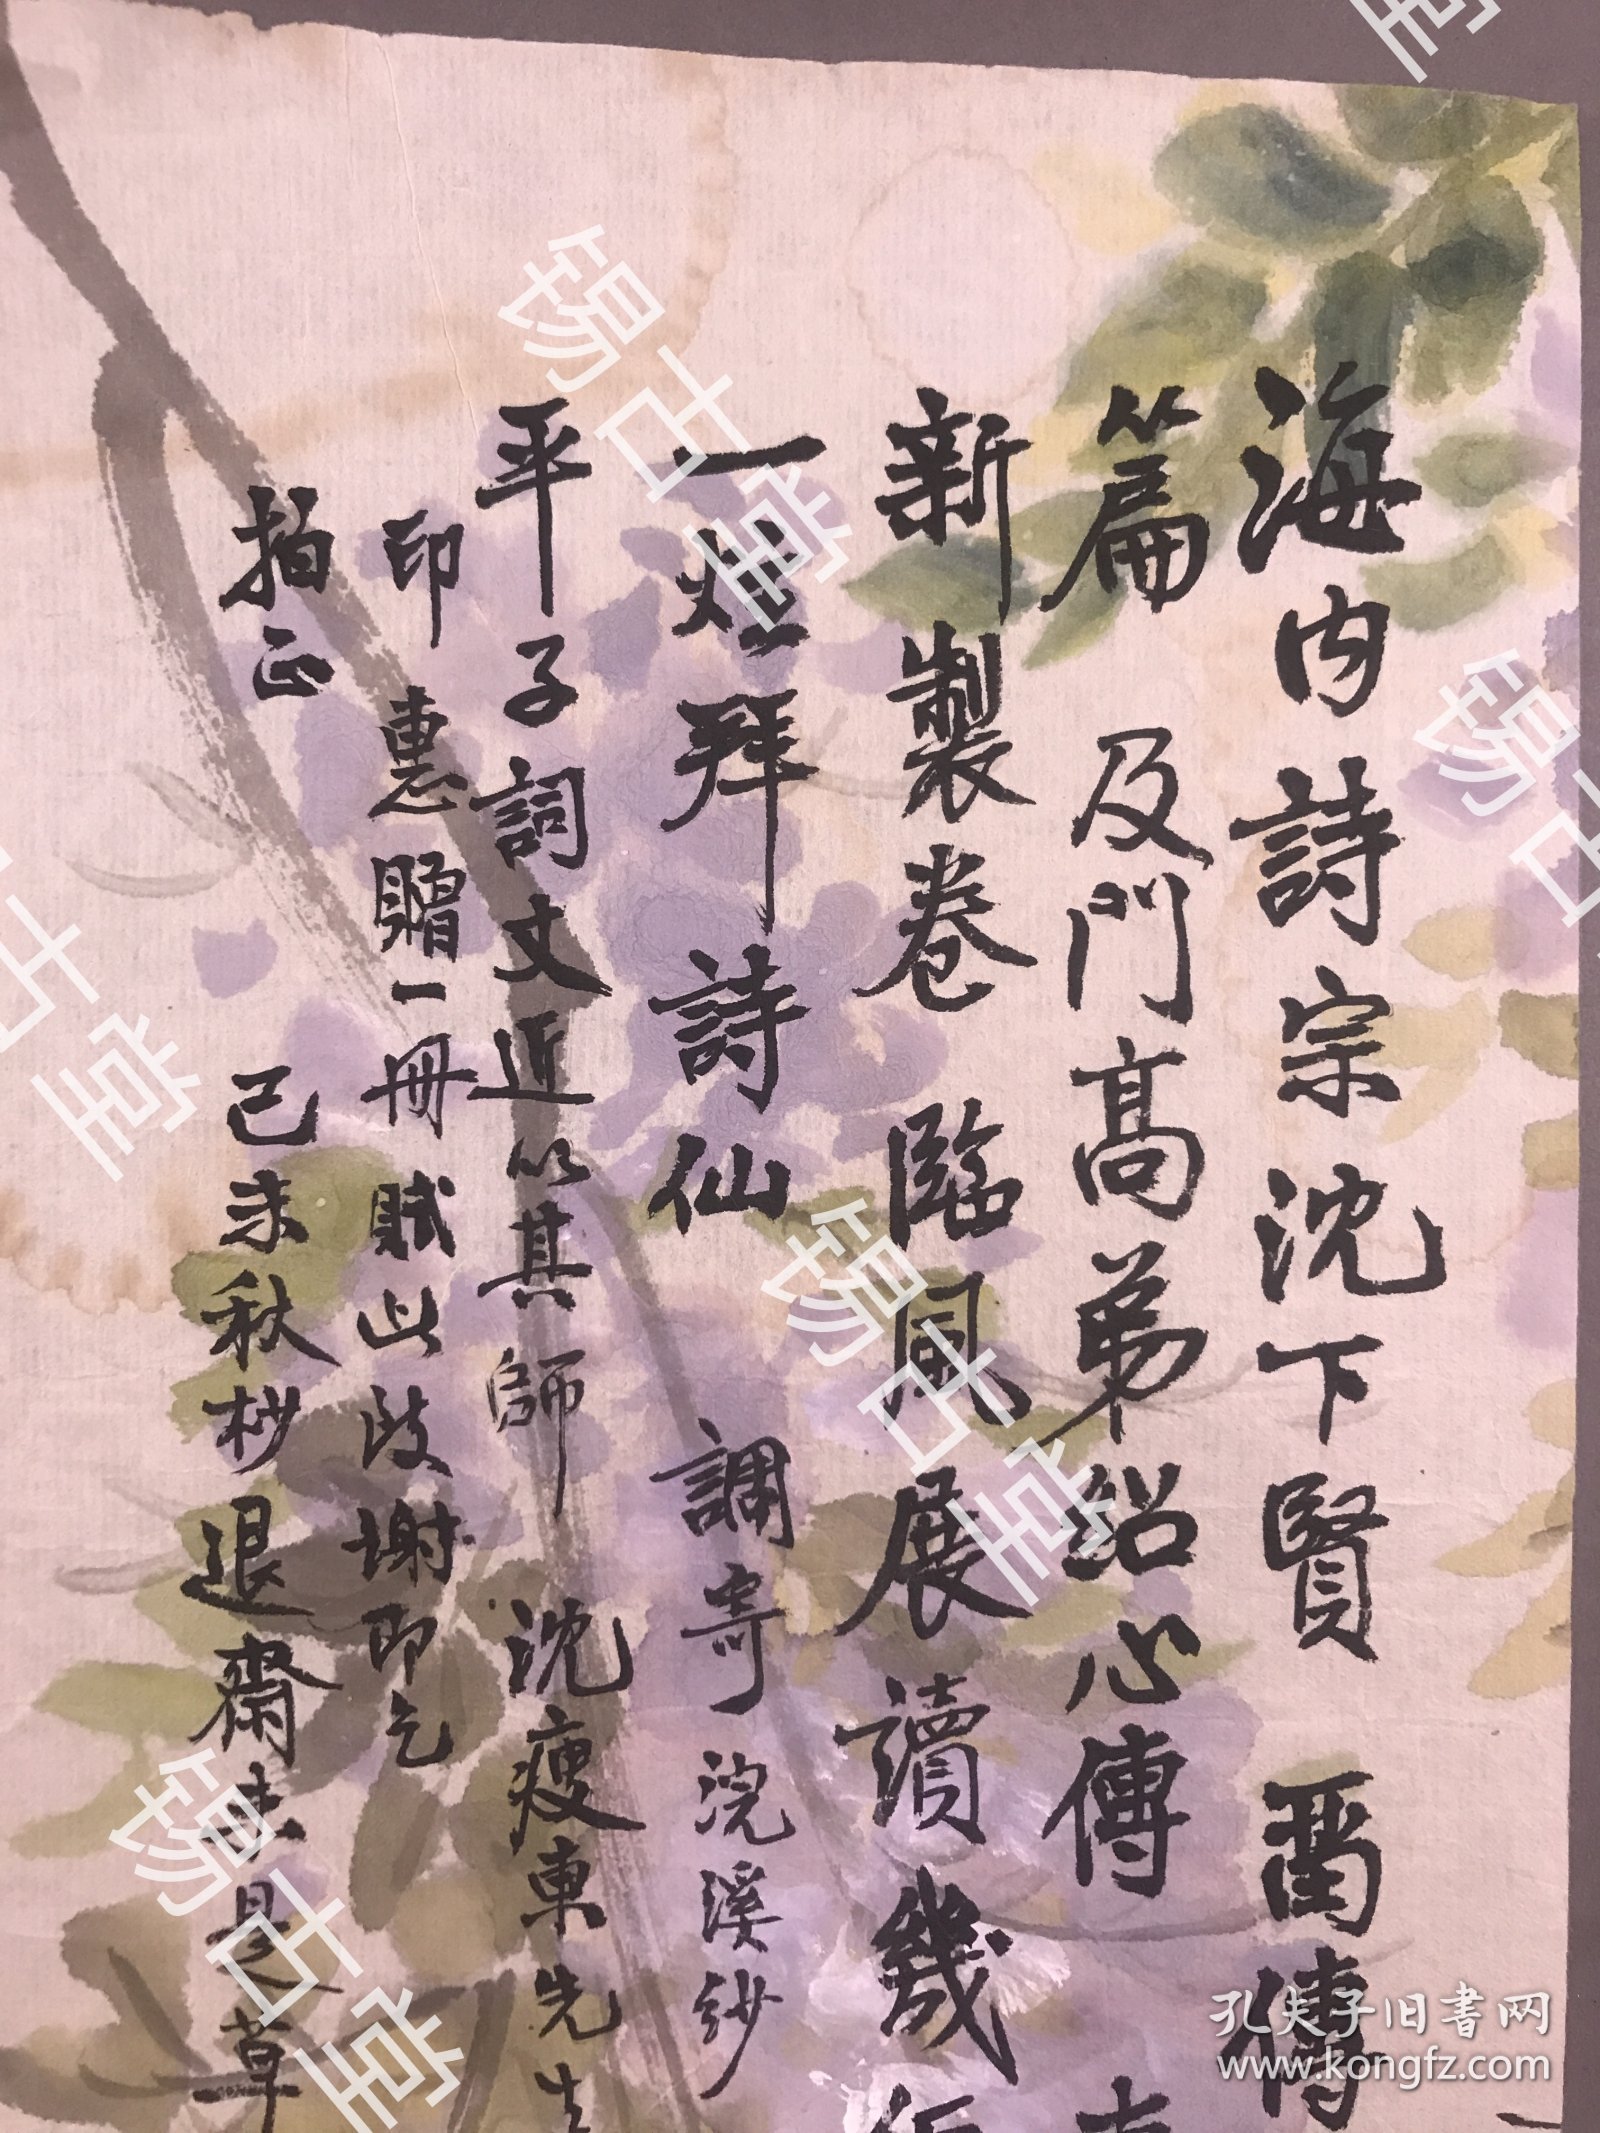 海内詩宗沈下賢 留傳
篇 及門高弟紹心傳
新製卷 臨風展讀幾
一燈拜詩仙 調寄浣溪紗
平子詞丈近以其師 沈瘦東先生
印 惠贈一冊賦此致謝即乞
拍正 己未秋杪退齋
是草
锡古堂
锡古堂
锡古堂
古堂
锡古堂
孔夫子旧书网
www.kongfz.com